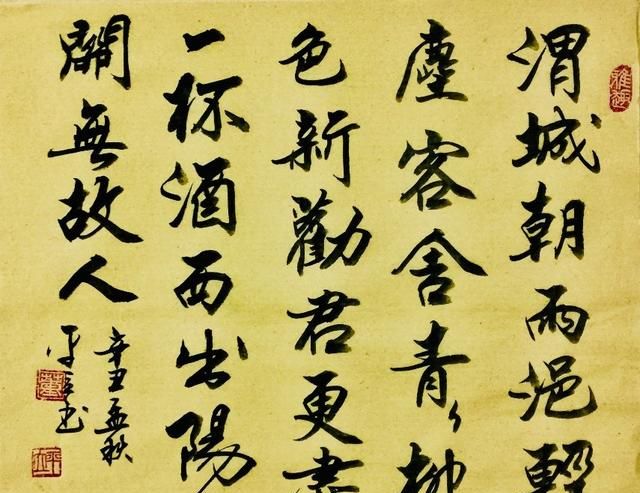 渭城朝雨浥輕
塵客舍青々柳
色新勸君更盡
一杯酒西出陽
關無故人
辛丑孟秋